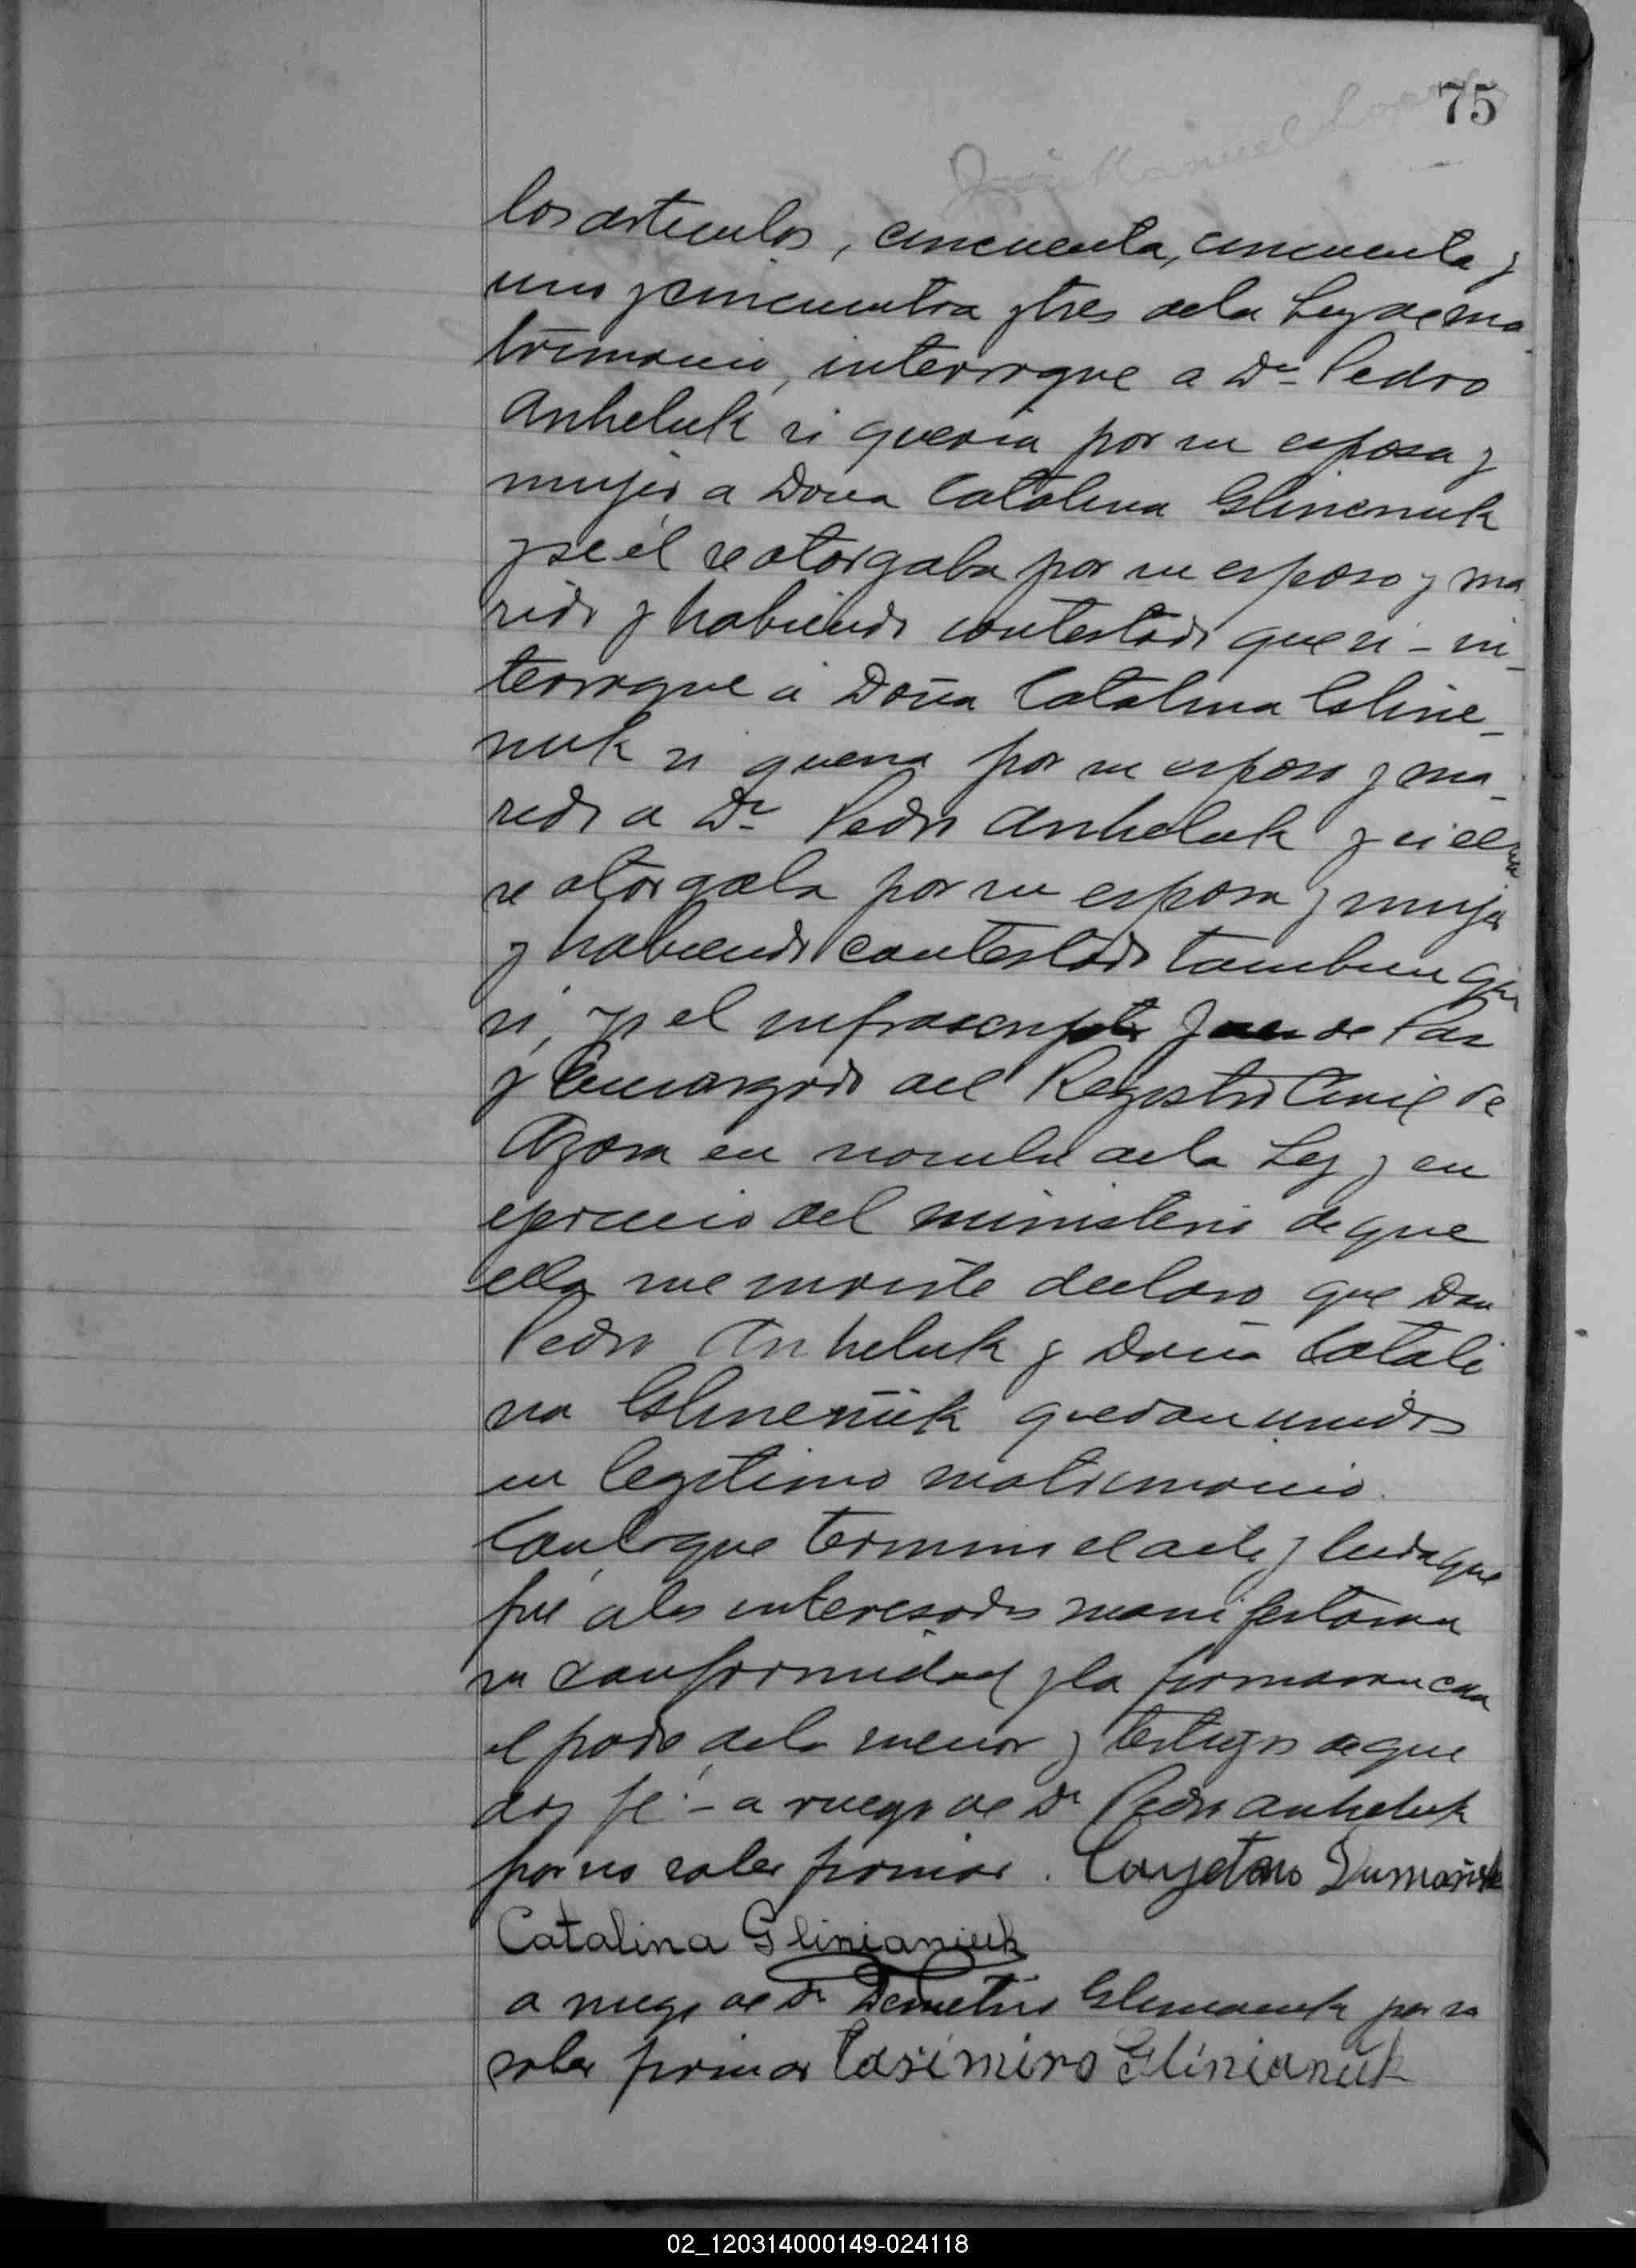 75
los articulos, cincuenta, cincuenta y
uno y cincuenta y tres de la Ley de ma
trimonio, interrogue a Dn Pedro
Anheluk si queria por su esposa y
mujer a Doña Catalina Glineniuk
y se él se otorgaba por su esposo y ma
rido y habiendo contestado que si - in_
terrogue a Doña Catalina Gline_
nuk si queria por su esposo y ma_
rido a Dn Pedro Anheluk y si ella
se otorgaba por su esposa y mujer
y habiendo contestado tambien que
si, yo el infrascripto Juez de Paz
y Encargado del Registro Civil de
Azara en nombre de la Ley y en
ejercicio del ministerio de que
ella me inviste declaro que Don
Pedro Anheluk y Doña Catali
na Glineniuk quedan unidos
en legitimo matrimonio.
Con lo que termino el acto y leida que
fué a los interesados manifestaron
su conformidad y la firmaron con
el padre de la menor y testigos de que
doy fé - a ruego de Dn Pedro Anheluk
por no saber firmar. Cayetano
Catalina Glinianiuk
a ruego de Dn Demetrio por no
saber firmar Casimiro Glinianiuk
02_120314000149-024118